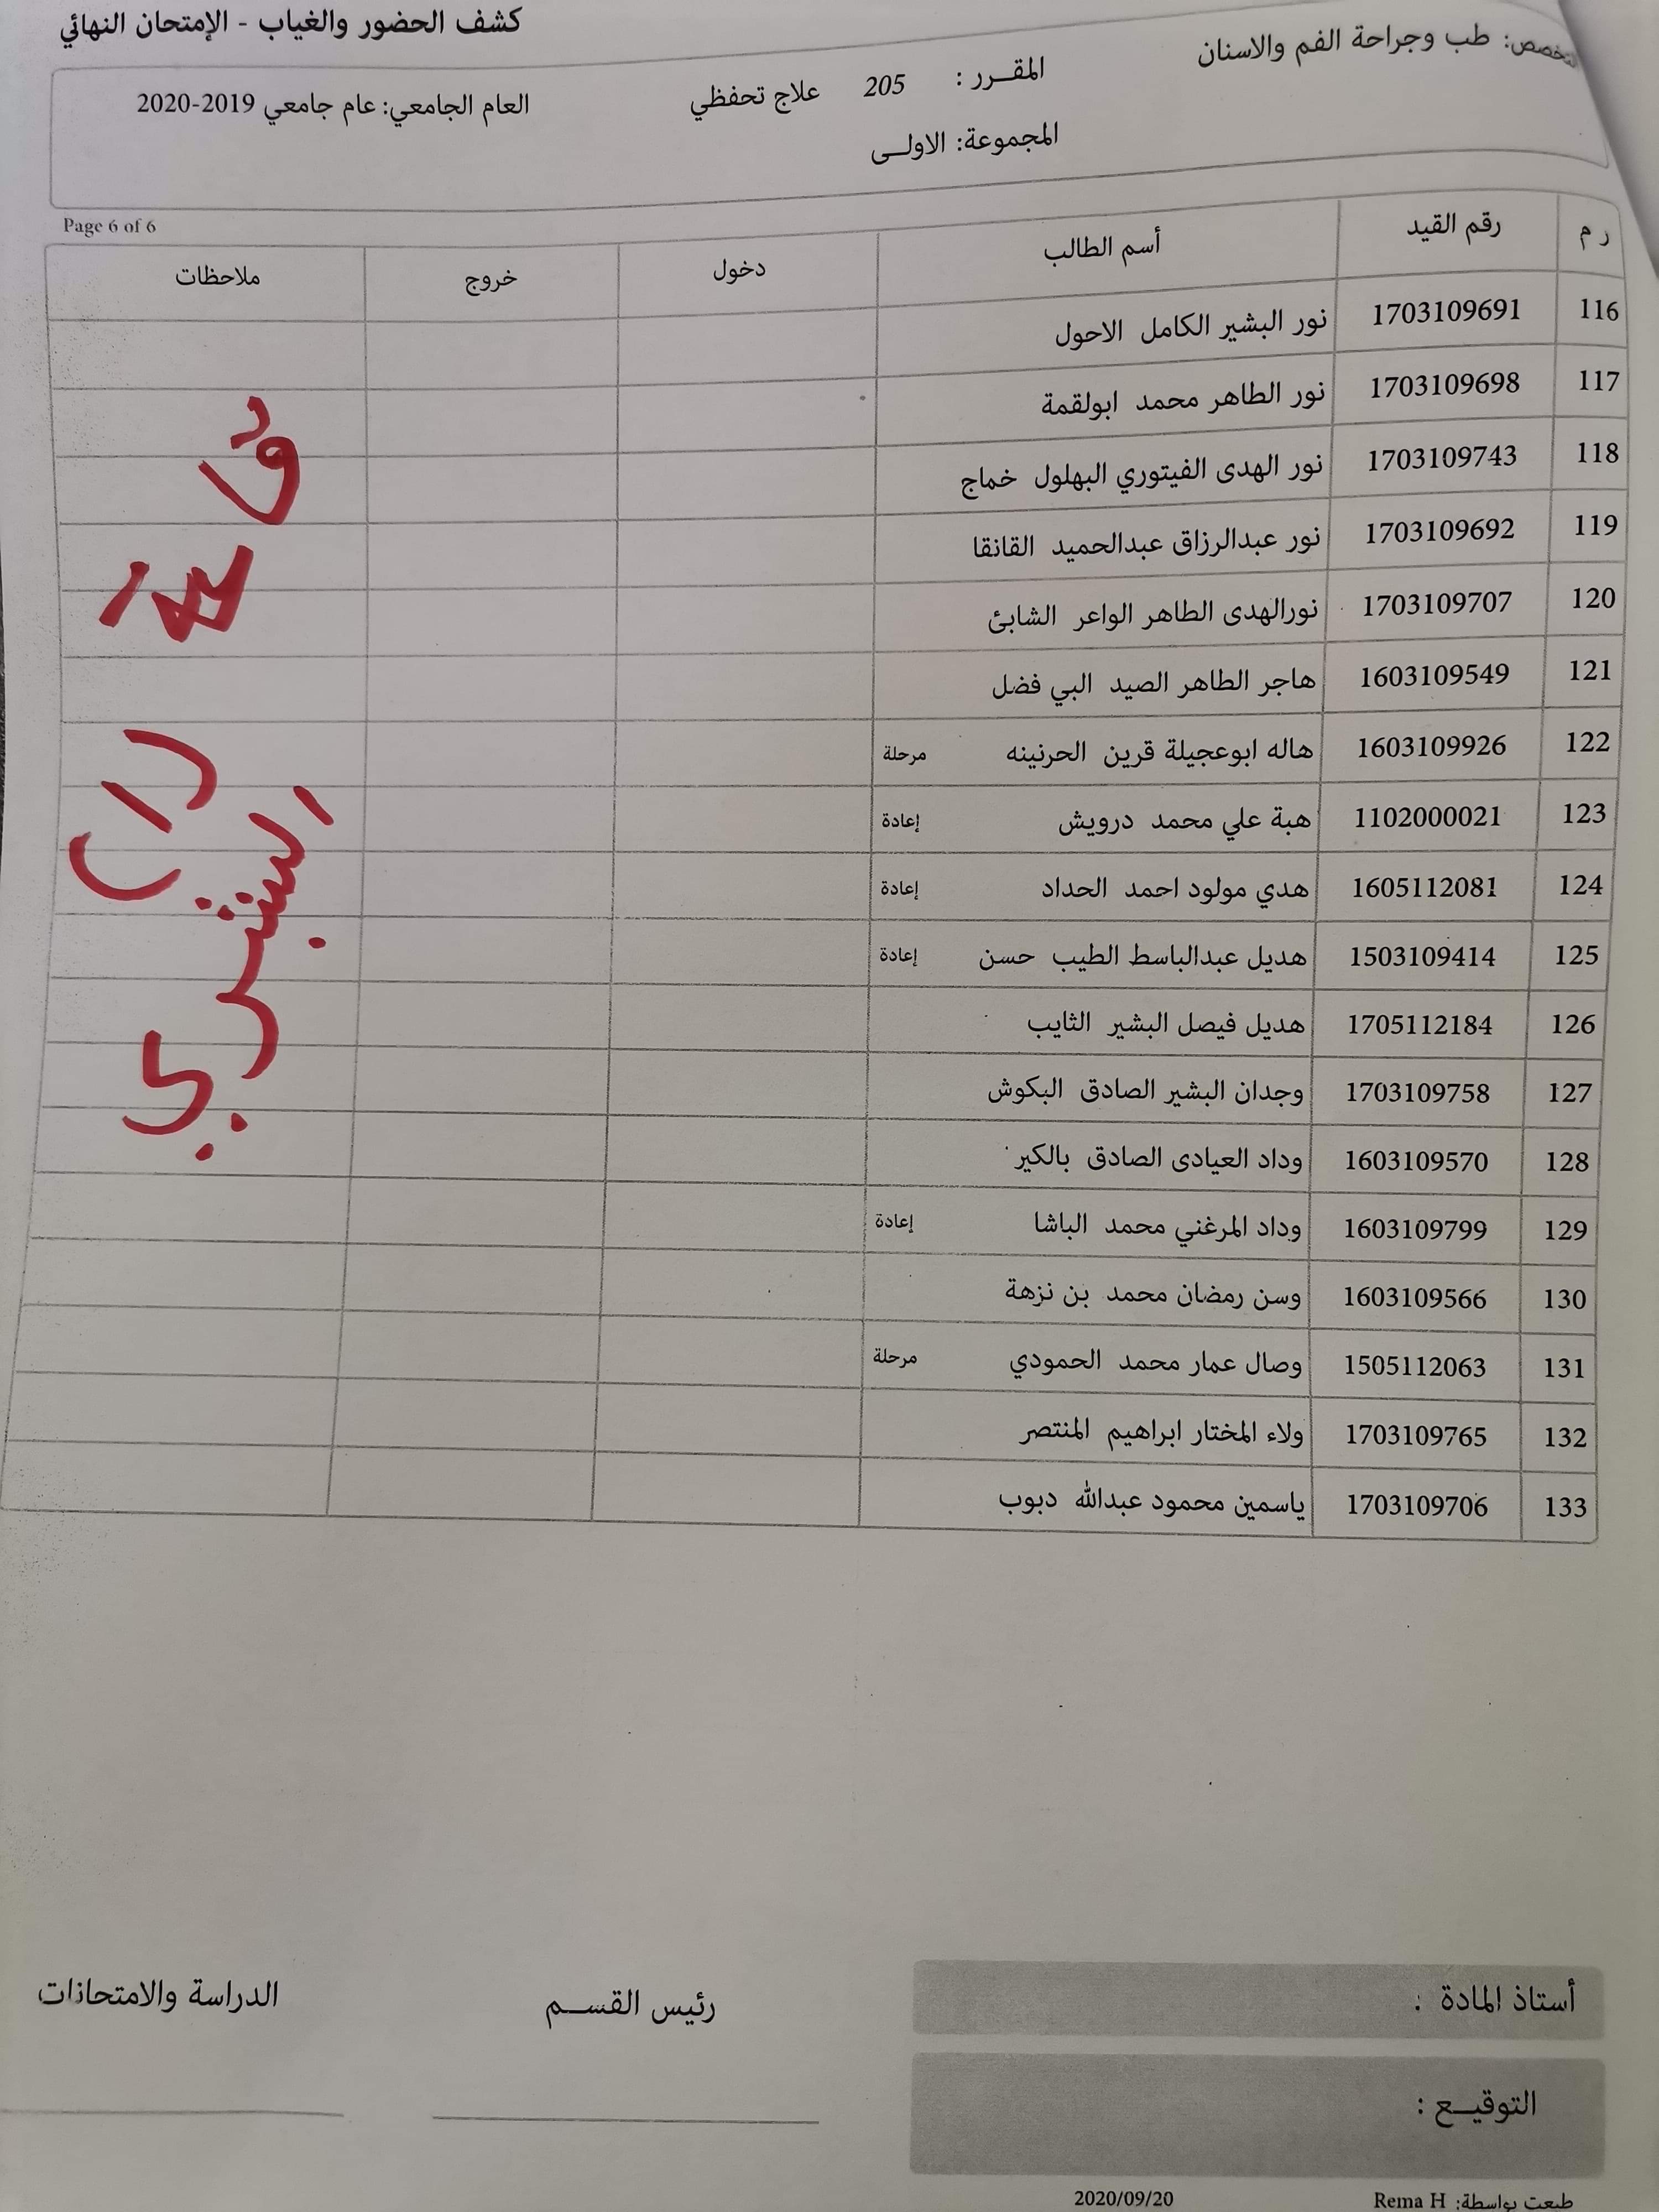 كشف الحضور والغياب - الإمتحان النهائي
التخصص: طب وجراحة الفم والاسنان
المقــرر : 205 علاج تحفظي
العام الجامعي: عام جامعي 2019-2020
المجموعة: الاولــى
Page 6 of 6
ر م رقم القيد أسم الطالب دخول خروج ملاحظات
116 1703109691 نور البشير الكامل الاحول
117 1703109698 نور الطاهر محمد ابولقمة
118 1703109743 نور الهدى الفيتوري البهلول خماج
119 1703109692 نور عبدالرزاق عبدالحميد القانقا
120 1703109707 نورالهدى الطاهر الواعر الشابئ
121 1603109549 هاجر الطاهر الصيد البي فضل
122 1603109926 هاله ابوعجيلة قرين الحرنينه مرحلة
123 1102000021 هبة علي محمد درويش إعادة
124 1605112081 هدي مولود احمد الحداد إعادة
125 1503109414 هديل عبدالباسط الطيب حسن إعادة
126 1705112184 هديل فيصل البشير الثايب
127 1703109758 وجدان البشير الصادق البكوش
128 1603109570 وداد العيادى الصادق بالكير
129 1603109799 وداد المرغني محمد الباشا إعادة
130 1603109566 وسن رمضان محمد بن نزهة
131 1505112063 وصال عمار محمد الحمودي مرحلة
132 1703109765 ولاء المختار ابراهيم المنتصر
133 1703109706 ياسمين محمود عبدالله دبوب
قاعة (1)
البشري
أستاذ المادة :
رئيس القســم
الدراسة والامتحانات
التوقيــع :
طبعت بواسطة: Rema H
2020/09/20